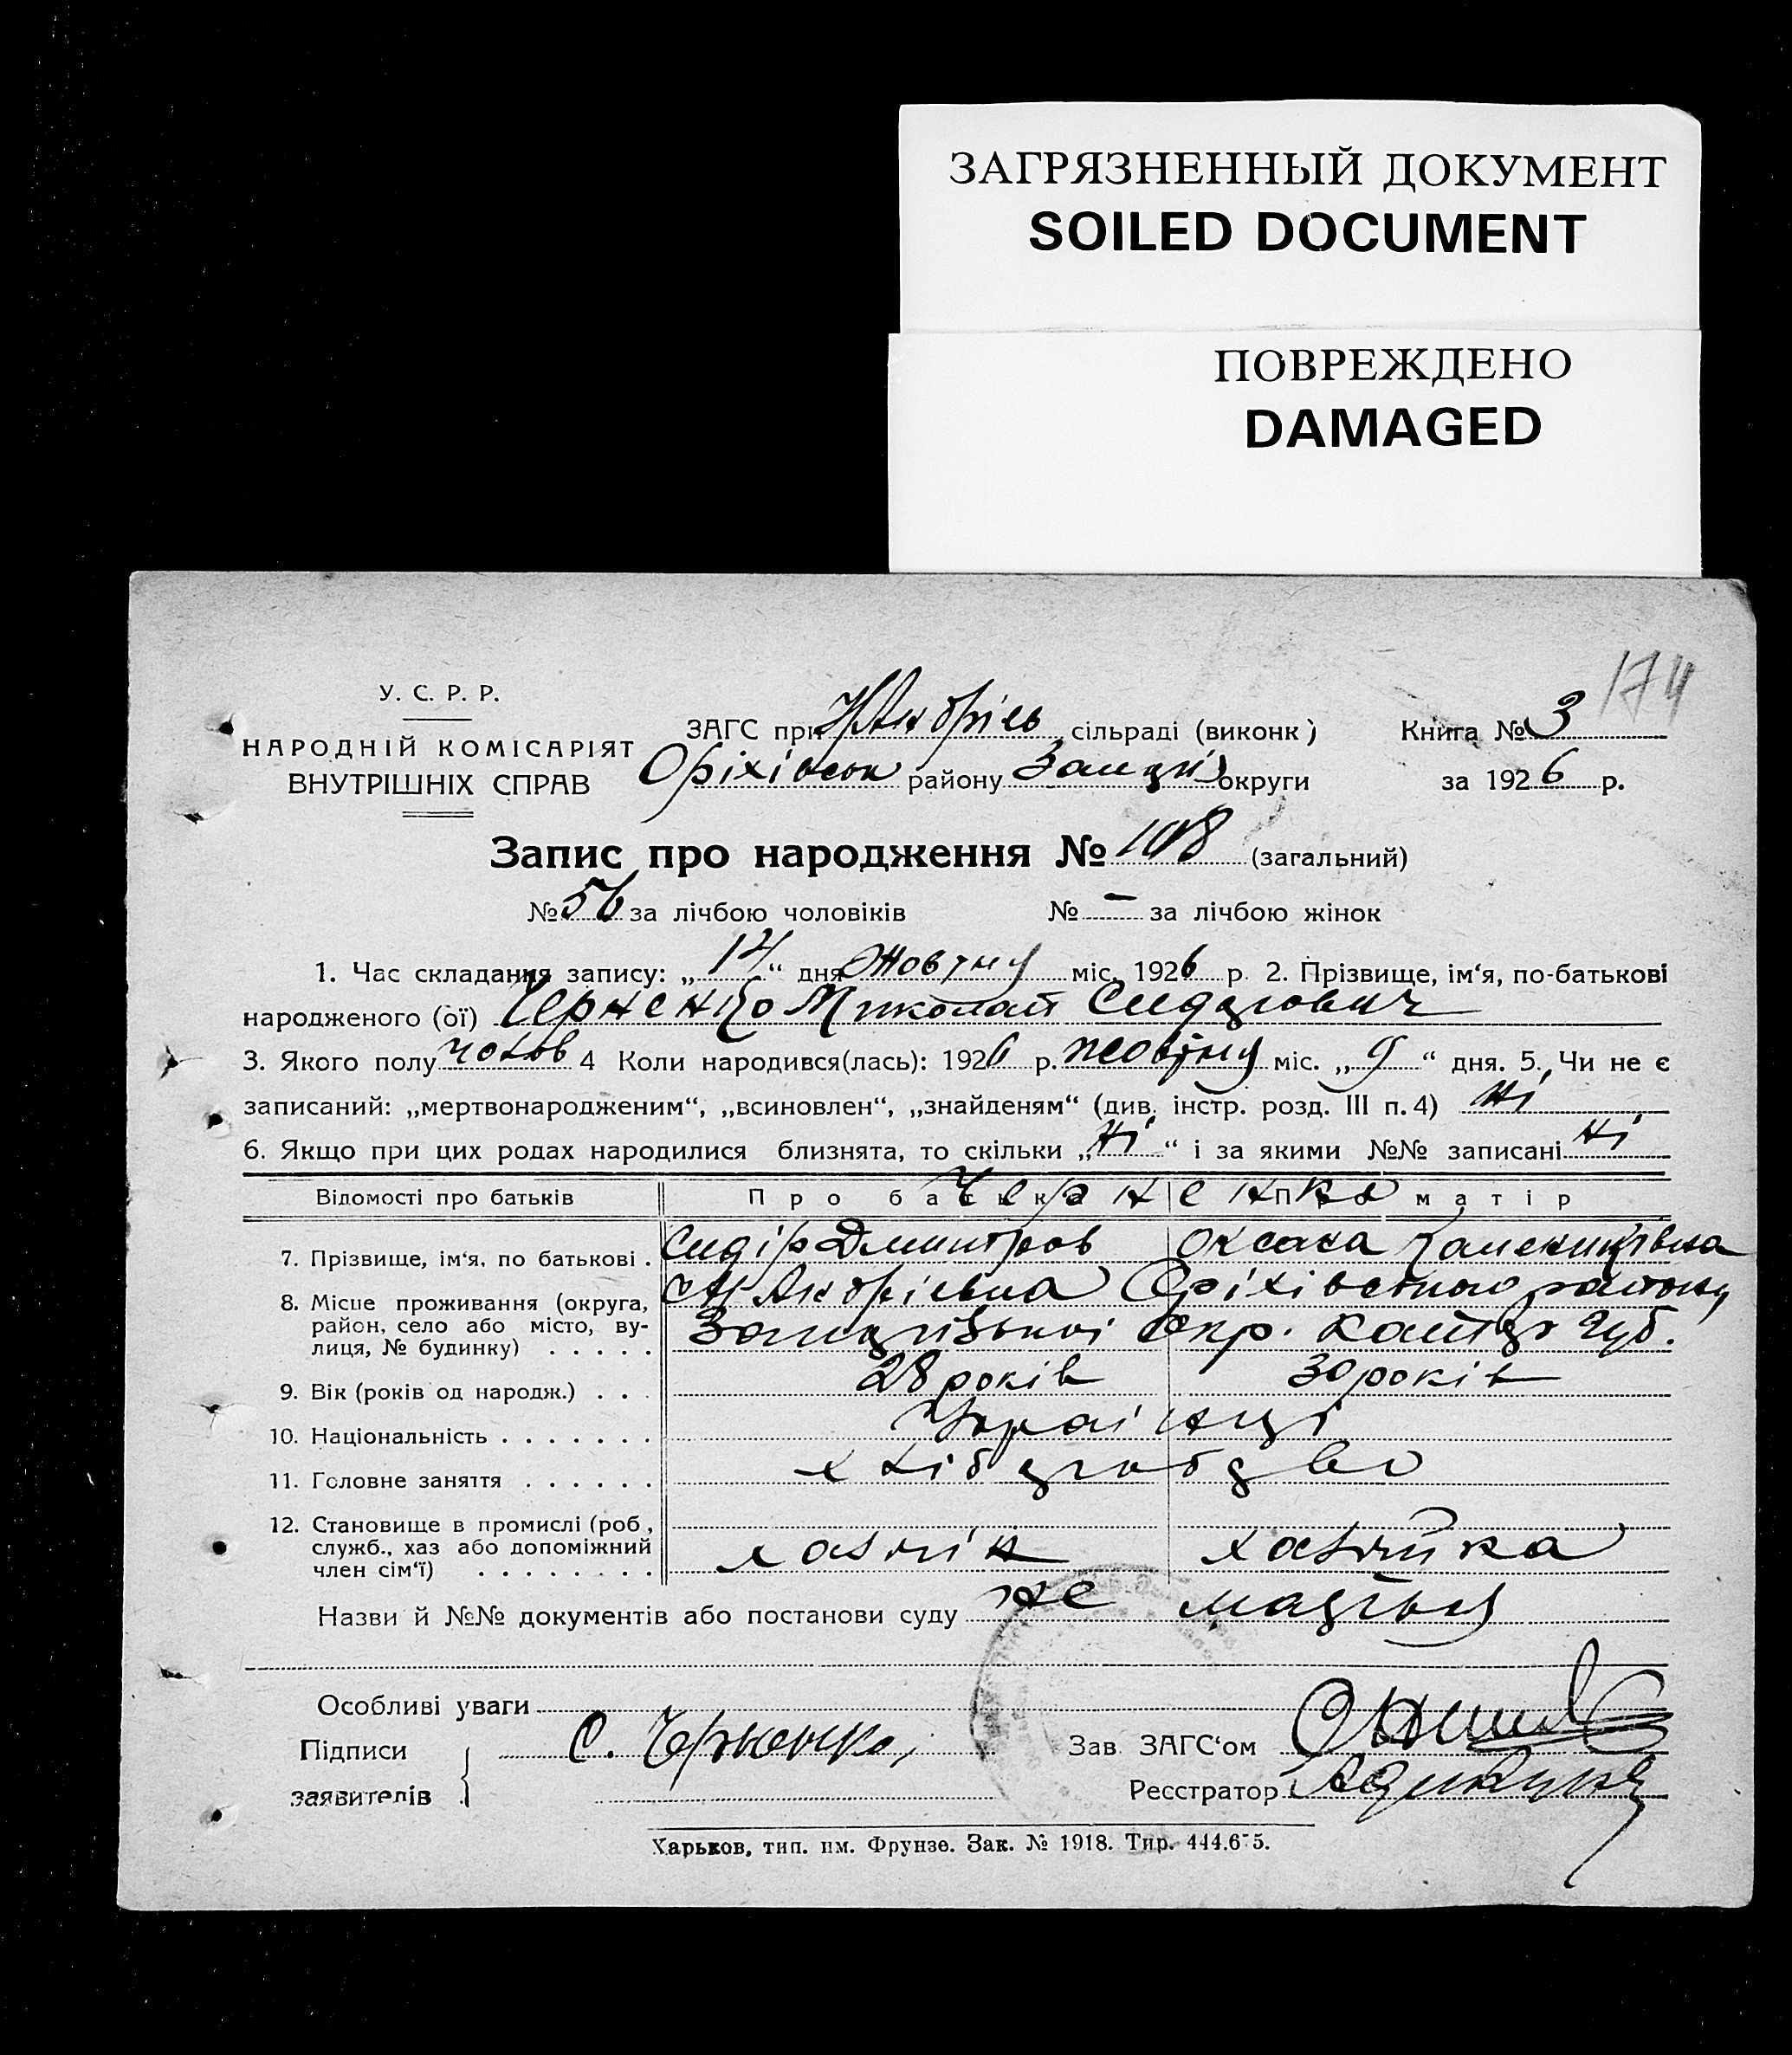 ЗАГРЯЗНЕННЫЙ ДОКУМЕНТ
SOILED DOCUMENT
ПОВРЕЖДЕНО
DAMAGED
174
У. С. Р. Р.
НАРОДНІЙ КОМІСАРІЯТ
ВНУТРІШНІХ СПРАВ
ЗАГС при сільраді (виконк) Книга № 3
Оріхівськ району округи за 1926 р.
Запис про народження № 108 (загальний)
№ 56 за лічбою чоловіків № — за лічбою жінок
1. Час складання запису: „14“ дня жовтня міс. 1926 р. 2. Прізвище, ім‘я, по-батькові
народженого (ої) Черненко Миколай Сидорович
3. Якого полу чолов 4 Коли народився(лась): 1926 р. жовтня міс. „9“ дня. 5. Чи не є
записаний: „мертвонародженим“, „всиновлен“, „знайденям“ (див. інстр. розд. III п. 4) Ні
6. Якщо при цих родах народилися близнята, то скільки „Ні“ і за якими №№ записані Ні
Відомості про батьків Про батька Про матір
Черненко
7. Прізвище, ім‘я, по батькові . Сидір Дмитров Оксана
8. Місце проживання (округа, район, село або місто, вулиця, № будинку) . . . . . Оріхівського району
Запорізької Окр. Губ.
9. Вік (років од народж.) . . . 28 років 30 років
10. Національність . . . . . . . Українці
11. Головне заняття . . . . . . хліборобство
12. Становище в промислі (роб., служб., хаз або допоміжний член сім‘ї) . . . . . . . . хазяїн хазяйка
Назви й №№ документів або постанови суду не мають
Особливі уваги
Підписи заявителів С. Черненко
Зав ЗАГС‘ом
Реєстратор
Харьков, тип. им. Фрунзе. Зак. № 1918. Тир. 444.675.